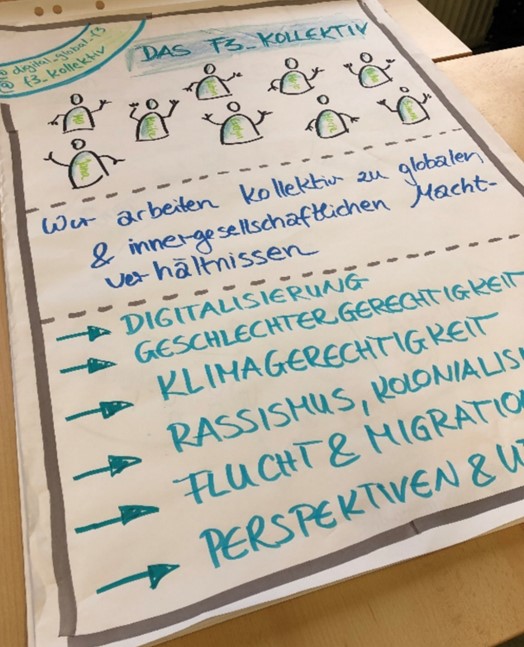 @digital_global_f3
@f3_kollektiv
DAS F3_KOLLEKTIV
Wir arbeiten kollektiv zu globalen
& innergesellschaftlichen Macht-
verhältnissen
DIGITALISIERUNG
GESCHLECHTERGERECHTIGKEIT
KLIMAGERECHTIGKEIT
RASSISMUS, KOLONIALIS
FLUCHT & MIGRATIO
PERSPEKTIVEN & U